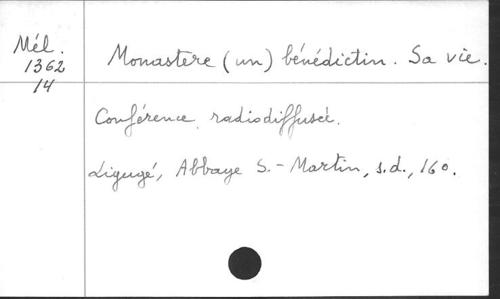 Mél.
1362
14
Monastere (un) bénédictin. Sa vie.
Conférence radiodiffusée.
Ligugé, Abbaye S.-Martin, s.d., 16o.